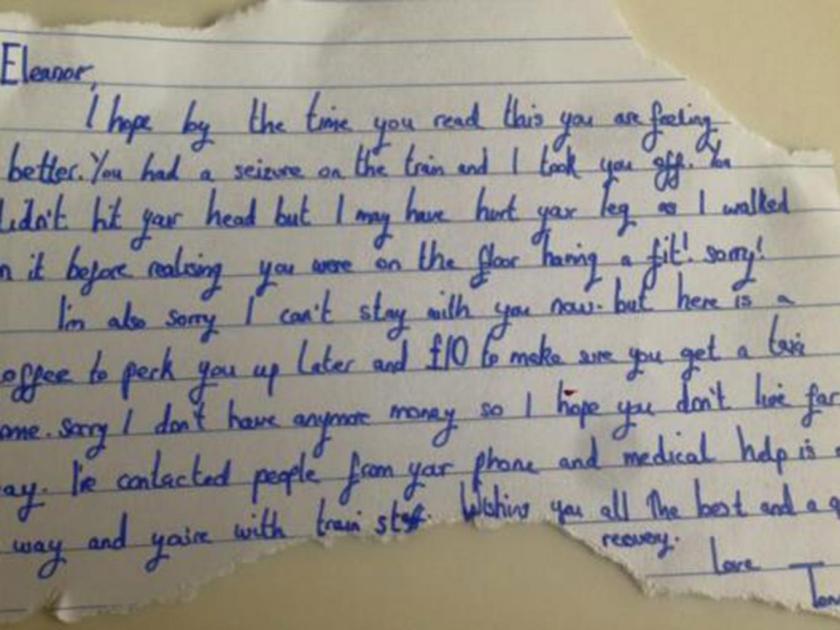 Eleanor,
I hope by the time you read this you are feeling
better. You had a seizure on the train and I took you off. You
didn't hit your head but I may have hurt your leg as I walked
n it before realising you were on the floor having a fit! Sorry!
I'm also sorry I can't stay with you now. but here is a
offee to perk you up later and £10 to make sure you get a taxi
ome. Sorry I don't have anymore money so I hope you don't live far
ay. I've contacted people from your phone and medical help is
way and you're with train staff. Wishing you all the best and a q
recovery.
Love
Tom